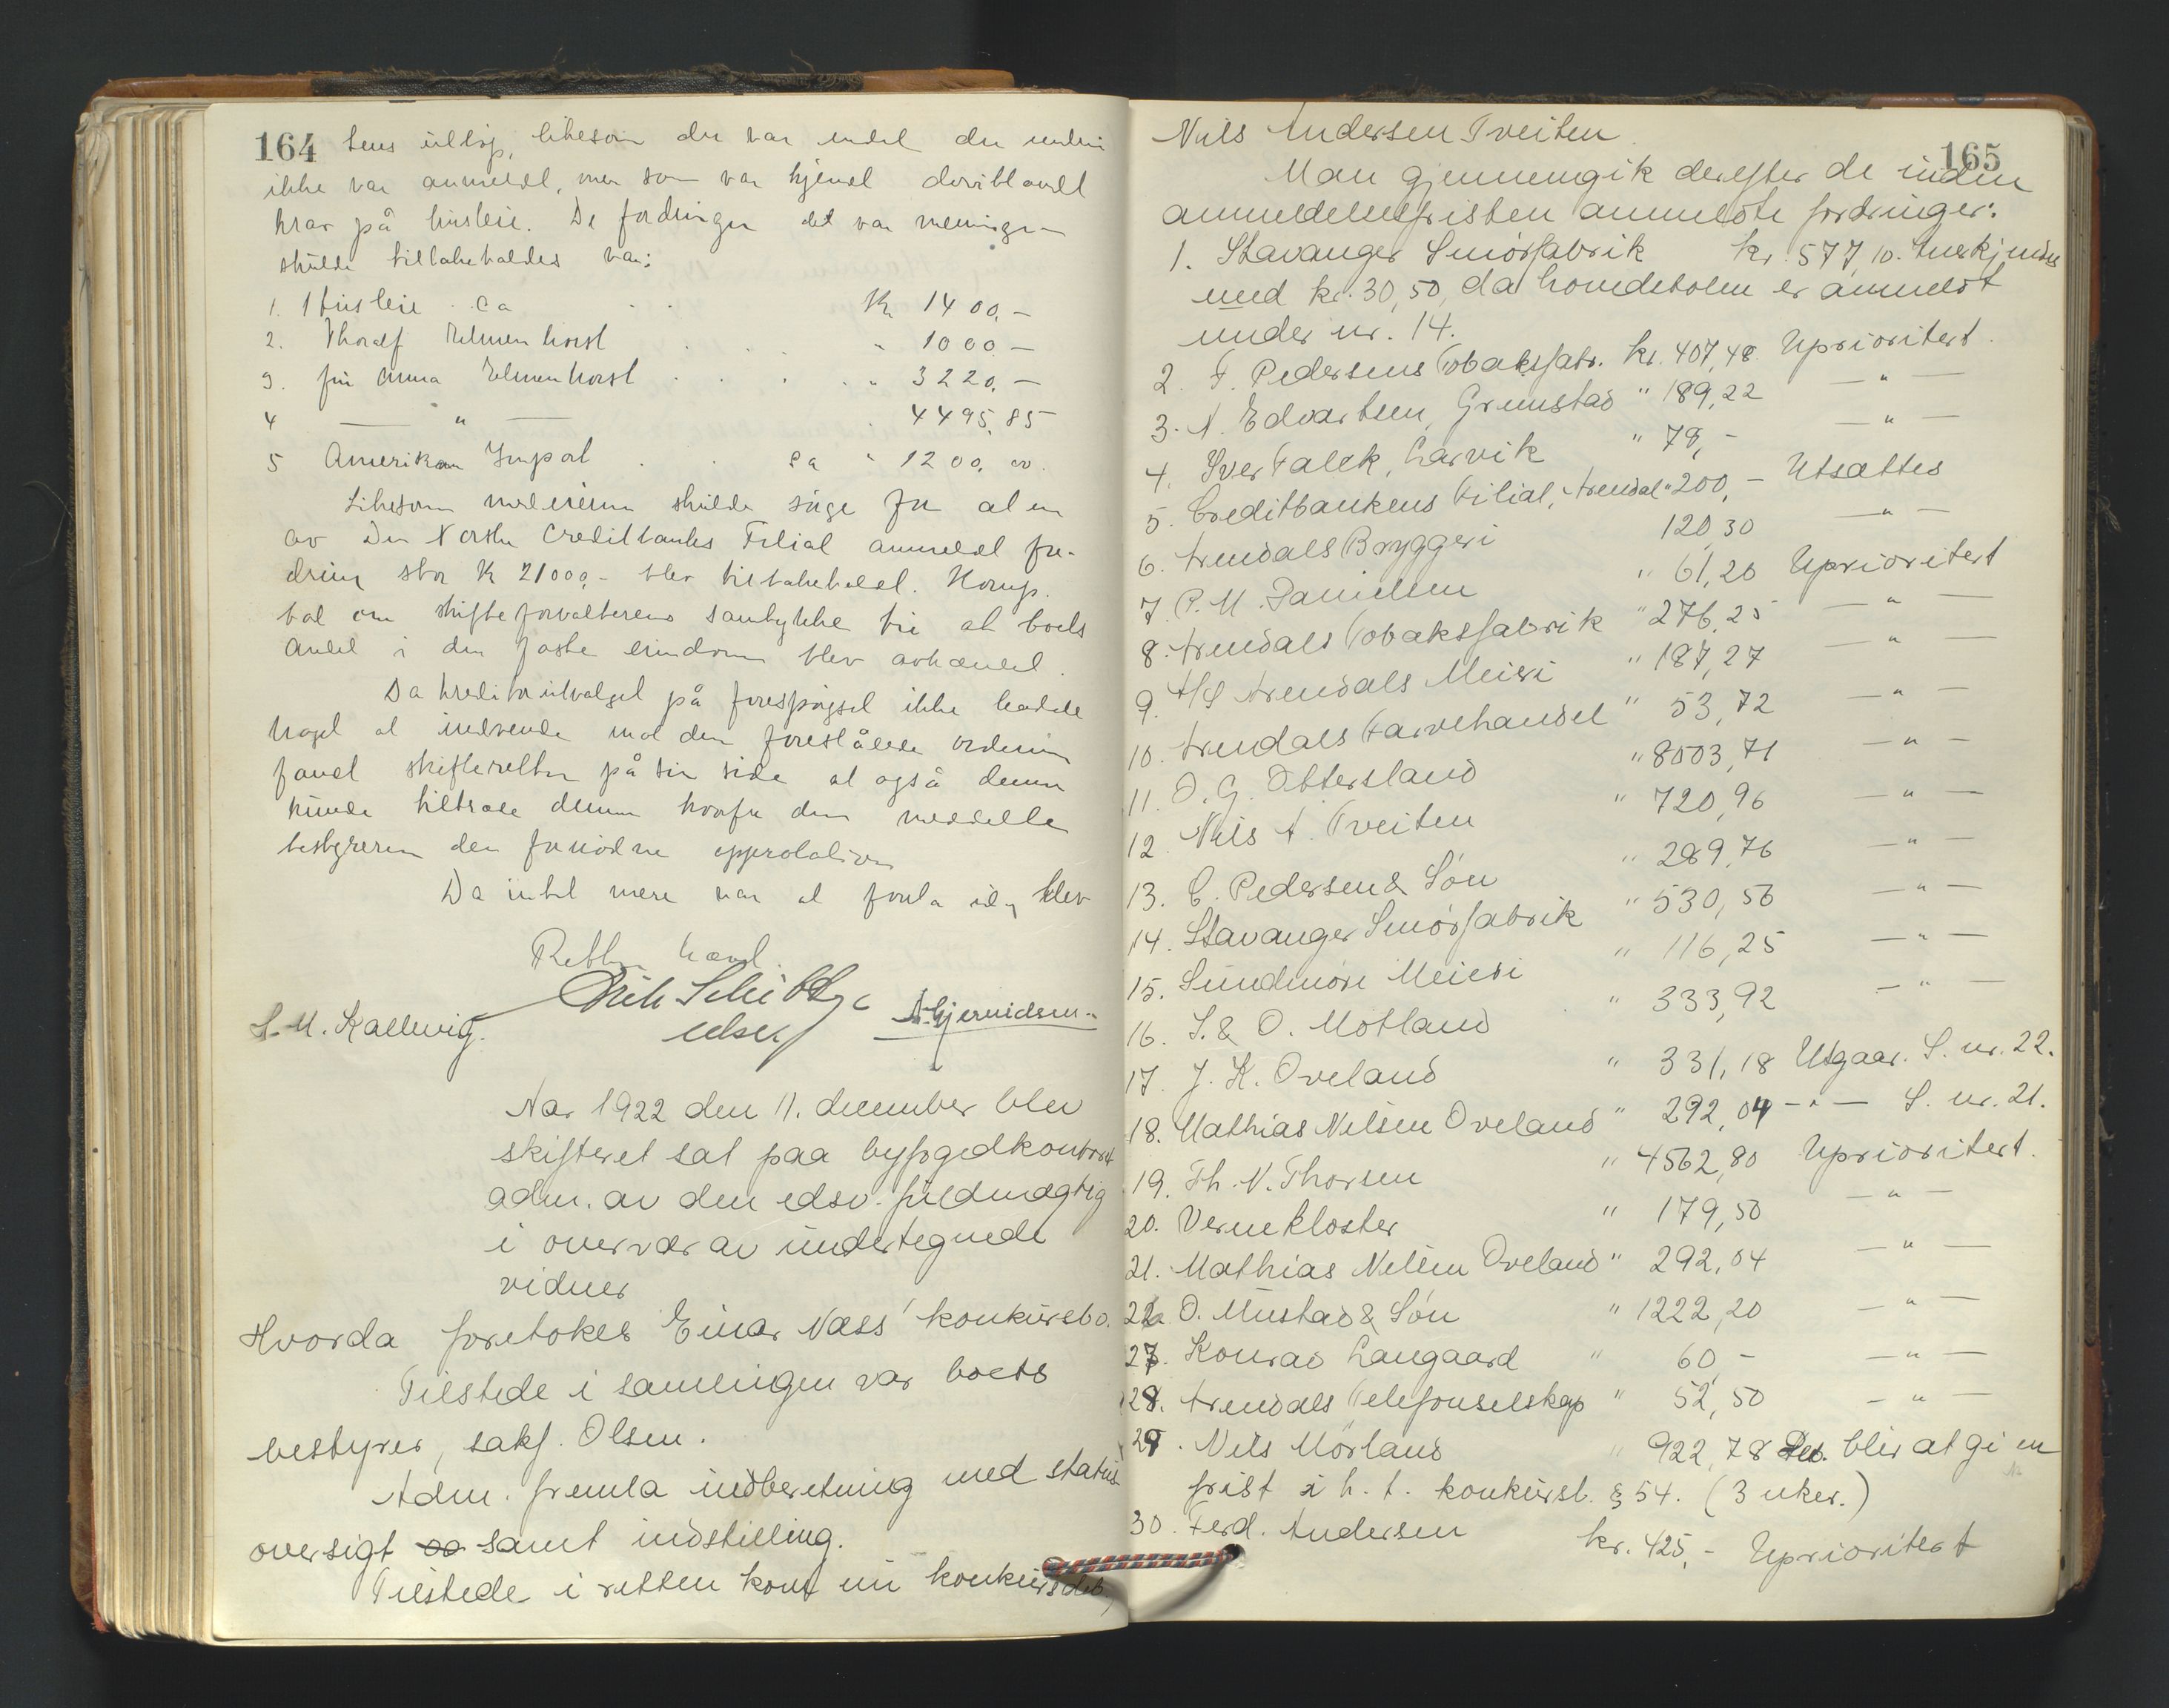 164 tens utløp, likesom der var endel der endnu
ikke var anmeldt, men som var kjendt deriblandt
krav på husleie. De fordringer det var meningen
skulde tilbakeholdes var:
1. Husleie ca Kr 1400.-
2. Thoralf Elmenhorst " 1000-
3. fru Anna Elmenhorst " 3220.-
4 — " — 4495.85
5 Amerikan Import ca " 1200.00.
Likesom skulde sørge for at en
av Den Norske Creditbanks Filial anmeldt for-
dring stor Kr 21000,- blev tilbakeholdt.
om skifteforvalterens samtykke til at boets
andel i den faste eiendom blev avhændet.
Da kreditorutvalget på forespørgsel ikke hadde
noget at indvende mot den foreslåede ordning
fandt skifteretten på sin side at også denne
kunde tiltræde denne hvorfor den meddelte
bestyreren den fornødne approbation
Da intet mere var at foreta idag blev
Retten hævet.
S. M. Kallevig.
Aar 1922 den 11. december blev
skifteret sat paa byfogedkontoret
adm. av den edsv. fuldmægtig
i overvær av undertegnede
vidner
Hvorda foretokes Einar Næss' konkursbo.
Tilstede i samlingen var boets
bestyrer, sakf. Olsen.
Adm. fremla indberetning med status
oversigt samt indstilling.
Tilstede i retten kom nu konkursdeb,
165
Nils Andersen Tveiten
Man gjennemgik derefter de inden
anmeldelsesfristen anmeldte fordringer:
1. Stavanger Smørfabrik kr. 577,10. Anerkjendes
med kr. 30,50, da hovedstolen er anmeldt
under nr. 14.
2. F. Pedersens Tobaksfabr. kr. 407,48 Uprioritert.
3. N. Edvartsen, Grimstad " 189,22 — " —
4. Iver Falck, Larvik " 79,- — " —
5. Creditbankens Filial, Arendal " 200,- Utsættes
6. Arendals Bryggeri 120,30 — " —
7. P. M. Danielsen " 61,20 Uprioritert
8. Arendals Tobaksfabrik " 276,25 — " —
9. A/S Arendals Meieri " 187,27 — " —
10. Arendals Farvehandel " 53,72 — " —
11. O. G. Ottersland " 8503,71 — " —
12. Nils A. Tveiten " 720,96 — " —
13. C. Pedersen & Søn " 289,76 — " —
14. Stavanger Smørfabrik " 530,56 — " —
15. Sundmøre Meieri " 116,25 — " —
16. S. & O. Motland " 333,92 — " —
17. J. K. Oveland " 331,18 Utgaar. S. nr. 22.
18. Mathias Nilsen Oveland " 292,04 — " — S. nr. 21.
19. Th. N. Thorsen " 4562,80 Uprioritert.
20. Verne Kloster " 179,50 — " —
21. Mathias Nilsen Oveland " 292,04 — " —
22. O. Mustad & Søn " 1222,20 — " —
27. Konrad Langaard " 60,- — " —
28. Arendals Telefonselskap " 52,50 — " —
29. Nils Mørland " 922,78 blir at gi en
frist i h. t. konkursl. § 54. (3 uker.)
30. Ferd. Andersen kr. 425,- Uprioritert